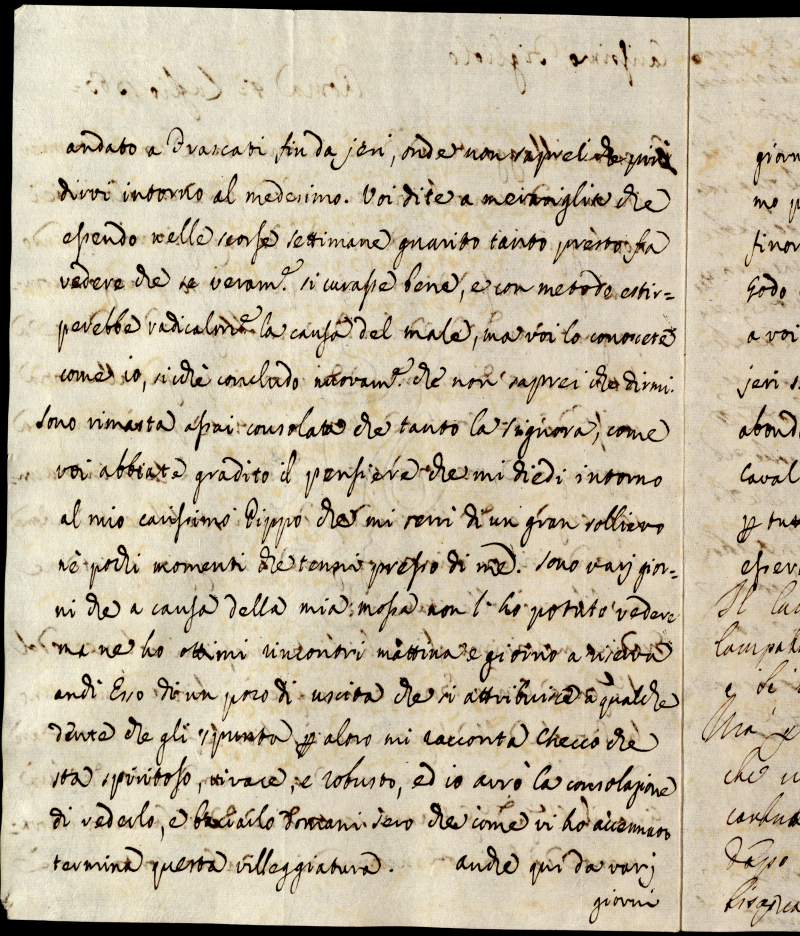 andato a Frascati fin da jeri, onde non saprei che più
dirvi intorno al medesimo. Voi dite a meraviglia che
essendo nelle scorse settimane guarito tanto presto fà
vedere che se veram.e si curasse bene, e con metodo estir=
perebbe radicalm.e la causa del male, ma voi lo conoscete
come io, sicchè concludo nuovam.e che non saprei che dirmi.
Sono rimasta assai consolata che tanto la Signora, come
voi abbiate gradito il pensiere che mi diedi intorno
al mio carissimo Pippo che mi servì di un gran sollievo
nè pochi momenti che tenni presso di me. Sono varj gior=
ni che a causa della mia mossa non l'ho potuto vedere
ma ne ho ottimi rincontri mattina e giorno a riserva
anch'Esso di un poco di uscita che si attribuisce a qualche
dente che gli spunta p altro mi racconta Checco che
sta spiritoso, vivace, e robusto, ed io avrò la consolazione
di vederlo, e baciarlo Domani sera che come vi ho accennato
termina questa villeggiatura. anche qui da varj
giorni
giorn
mo p
finor
Godo
a voi
jeri s
abond
Caval
p tutt
esser
Il
che